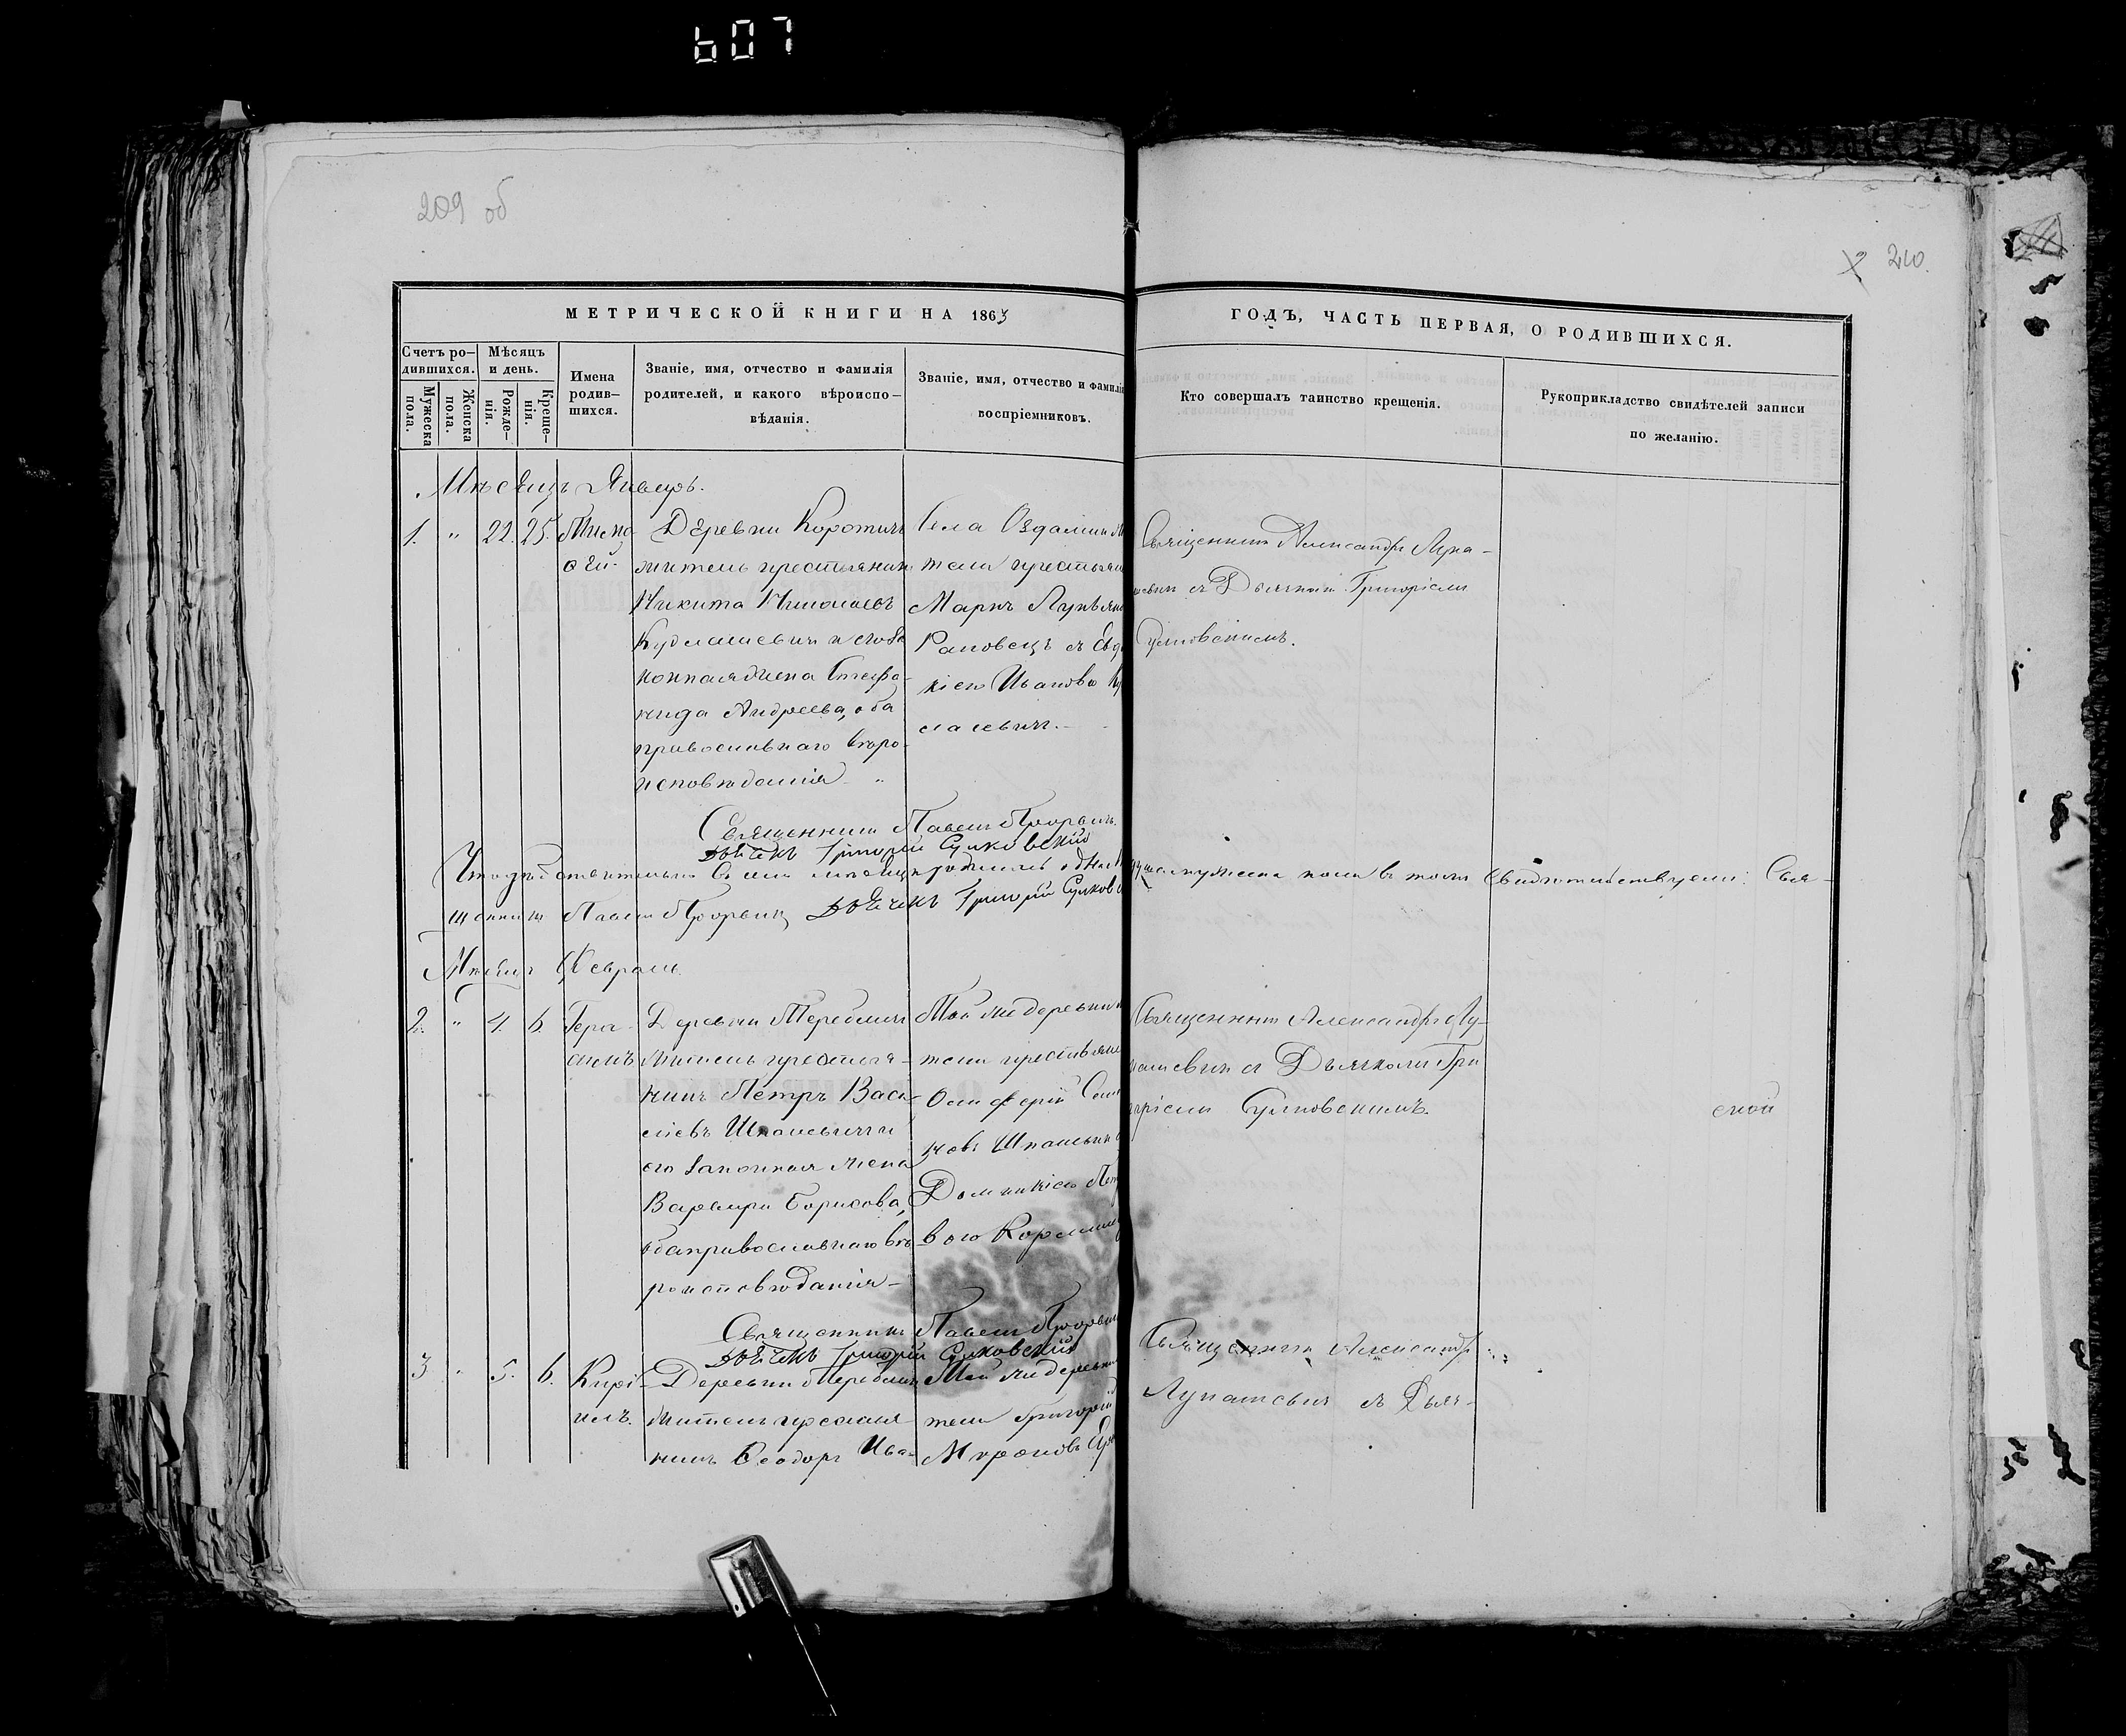 607
209 об
210.
МЕТРИЧЕСКОЙ КНИГИ НА 1863
ГОДЪ, ЧАСТЬ ПЕРВАЯ, О РОДИВШИХСЯ.
Счетъ ро-
дившихся.
Мужеска
пола.
Женска
пола.
Мѣсяцъ
и день.
Рожде-
нія.
Креще-
нія.
Имена
родив-
шихся.
Званіе, имя, отчество и фамилія
родителей, и какого вѣроиспо-
вѣданія.
Званіе, имя, отчество и фамилія
воспріемниковъ.
Кто совершалъ таинство крещенія.
Рукоприкладство свидѣтелей записи
по желанію.
Мѣсяцъ Январь.
1. " 22. 25. Тимо
ѳей.
Деревни Коротичъ
житель крестьянинъ
Никита Николаевъ
и его за
конная жена Стефа-
нида Андреева, оба
православнаго вѣро-
исповѣданія "
Села
тели крестьяне
Маркъ Лукьяно
Рановецъ и Евдо
кіею Иванова Ку
Священникъ Александръ Лука-
шевич съ Дьячкомъ Григоріемъ
Сулковскимъ.
Священникъ Павелъ
Дьячекъ Григорій Сулковскій
Что дѣйствительно въ семъ мѣсяцѣ родилась одна
душа мужеска пола въ томъ свидѣтельствуемъ: Свя-
щенникъ Павелъ Дьячекъ Григорій Сулковс
Мѣсяцъ Февраль.
2. " 4. 6. Гера-
симъ
Деревни Теребличъ
житель крестья-
нинъ Петръ Васи-
ліевъ Шпаневичъ и
его законная жена
Варвара Борисова,
оба православнаго вѣ-
роисповѣданія-
Той же деревни
тели крестьяне
Доминикіею
вою
Священникъ Александръ Лу-
кашевич съ Дьячкомъ Гри
горіемъ Сулковскимъ.
ской
Священникъ Павелъ
Дьячекъ Григорій Сулковскій
3 " 5. 6. Кири-
илъ.
Деревни Теребличъ
житель крестья-
нинъ Ѳеодоръ Ива-
Той же деревни
тели Григорій
Мироновъ
Священникъ Александръ
Лукашевич съ Дьяч-